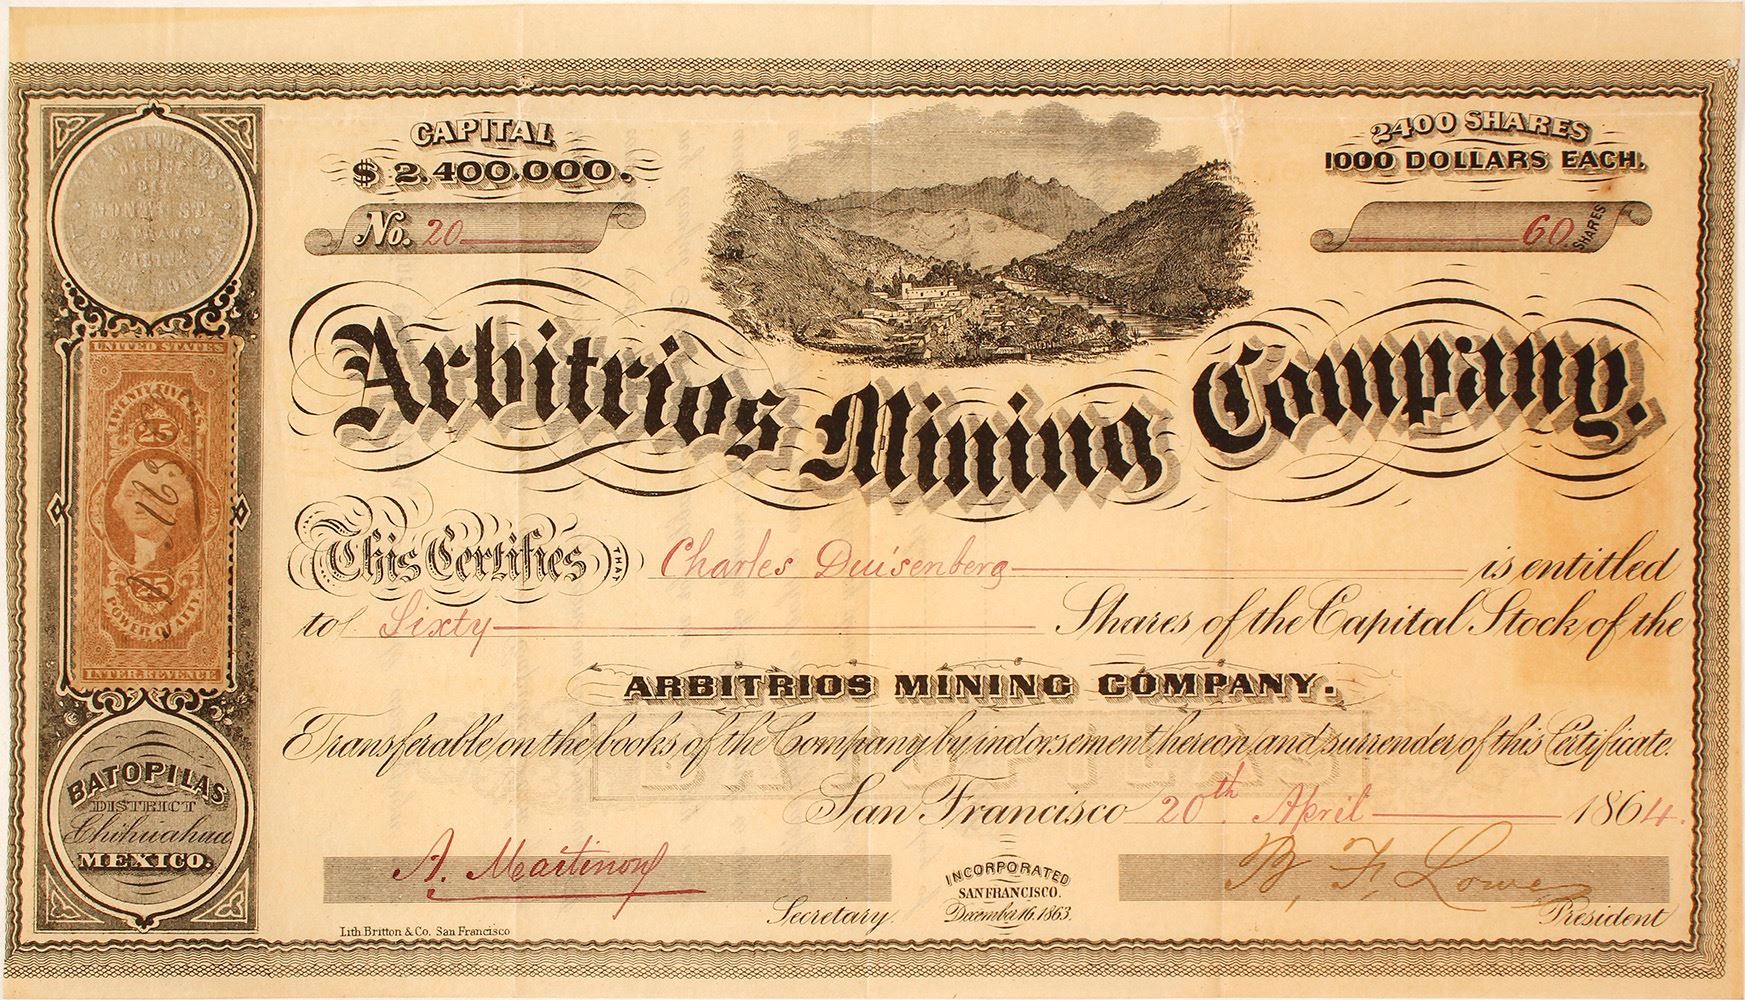 CAPITAL
$ 2.400.000.
2400 SHARES
1000 DOLLARS EACH.
No. 20
60 SHARES
Arbitrios Mining Company.
This Certifies THAT Charles Duisenberg is entitled
to Sixty Shares of the Capital Stock of the
ARBITRIOS MINING COMPANY.
Transferable on the books of the Company by indorsement hereon and surrender of this Certificate.
San Francisco 20th April 1864.
A. Martinon
Secretary.
INCORPORATED
SAN FRANCISCO.
December 16. 1863.
B. F. Lowe
President
Lith Britton & Co. San Francisco
ARBITRIOS
OFFICE
MONTY ST.
UNITED STATES
TWENTY FIVE CTS.
25
25
POWER OF ATTY.
INTER. REVENUE
BATOPILAS
DISTRICT
Chihuahua
MEXICO.
BATOPILAS